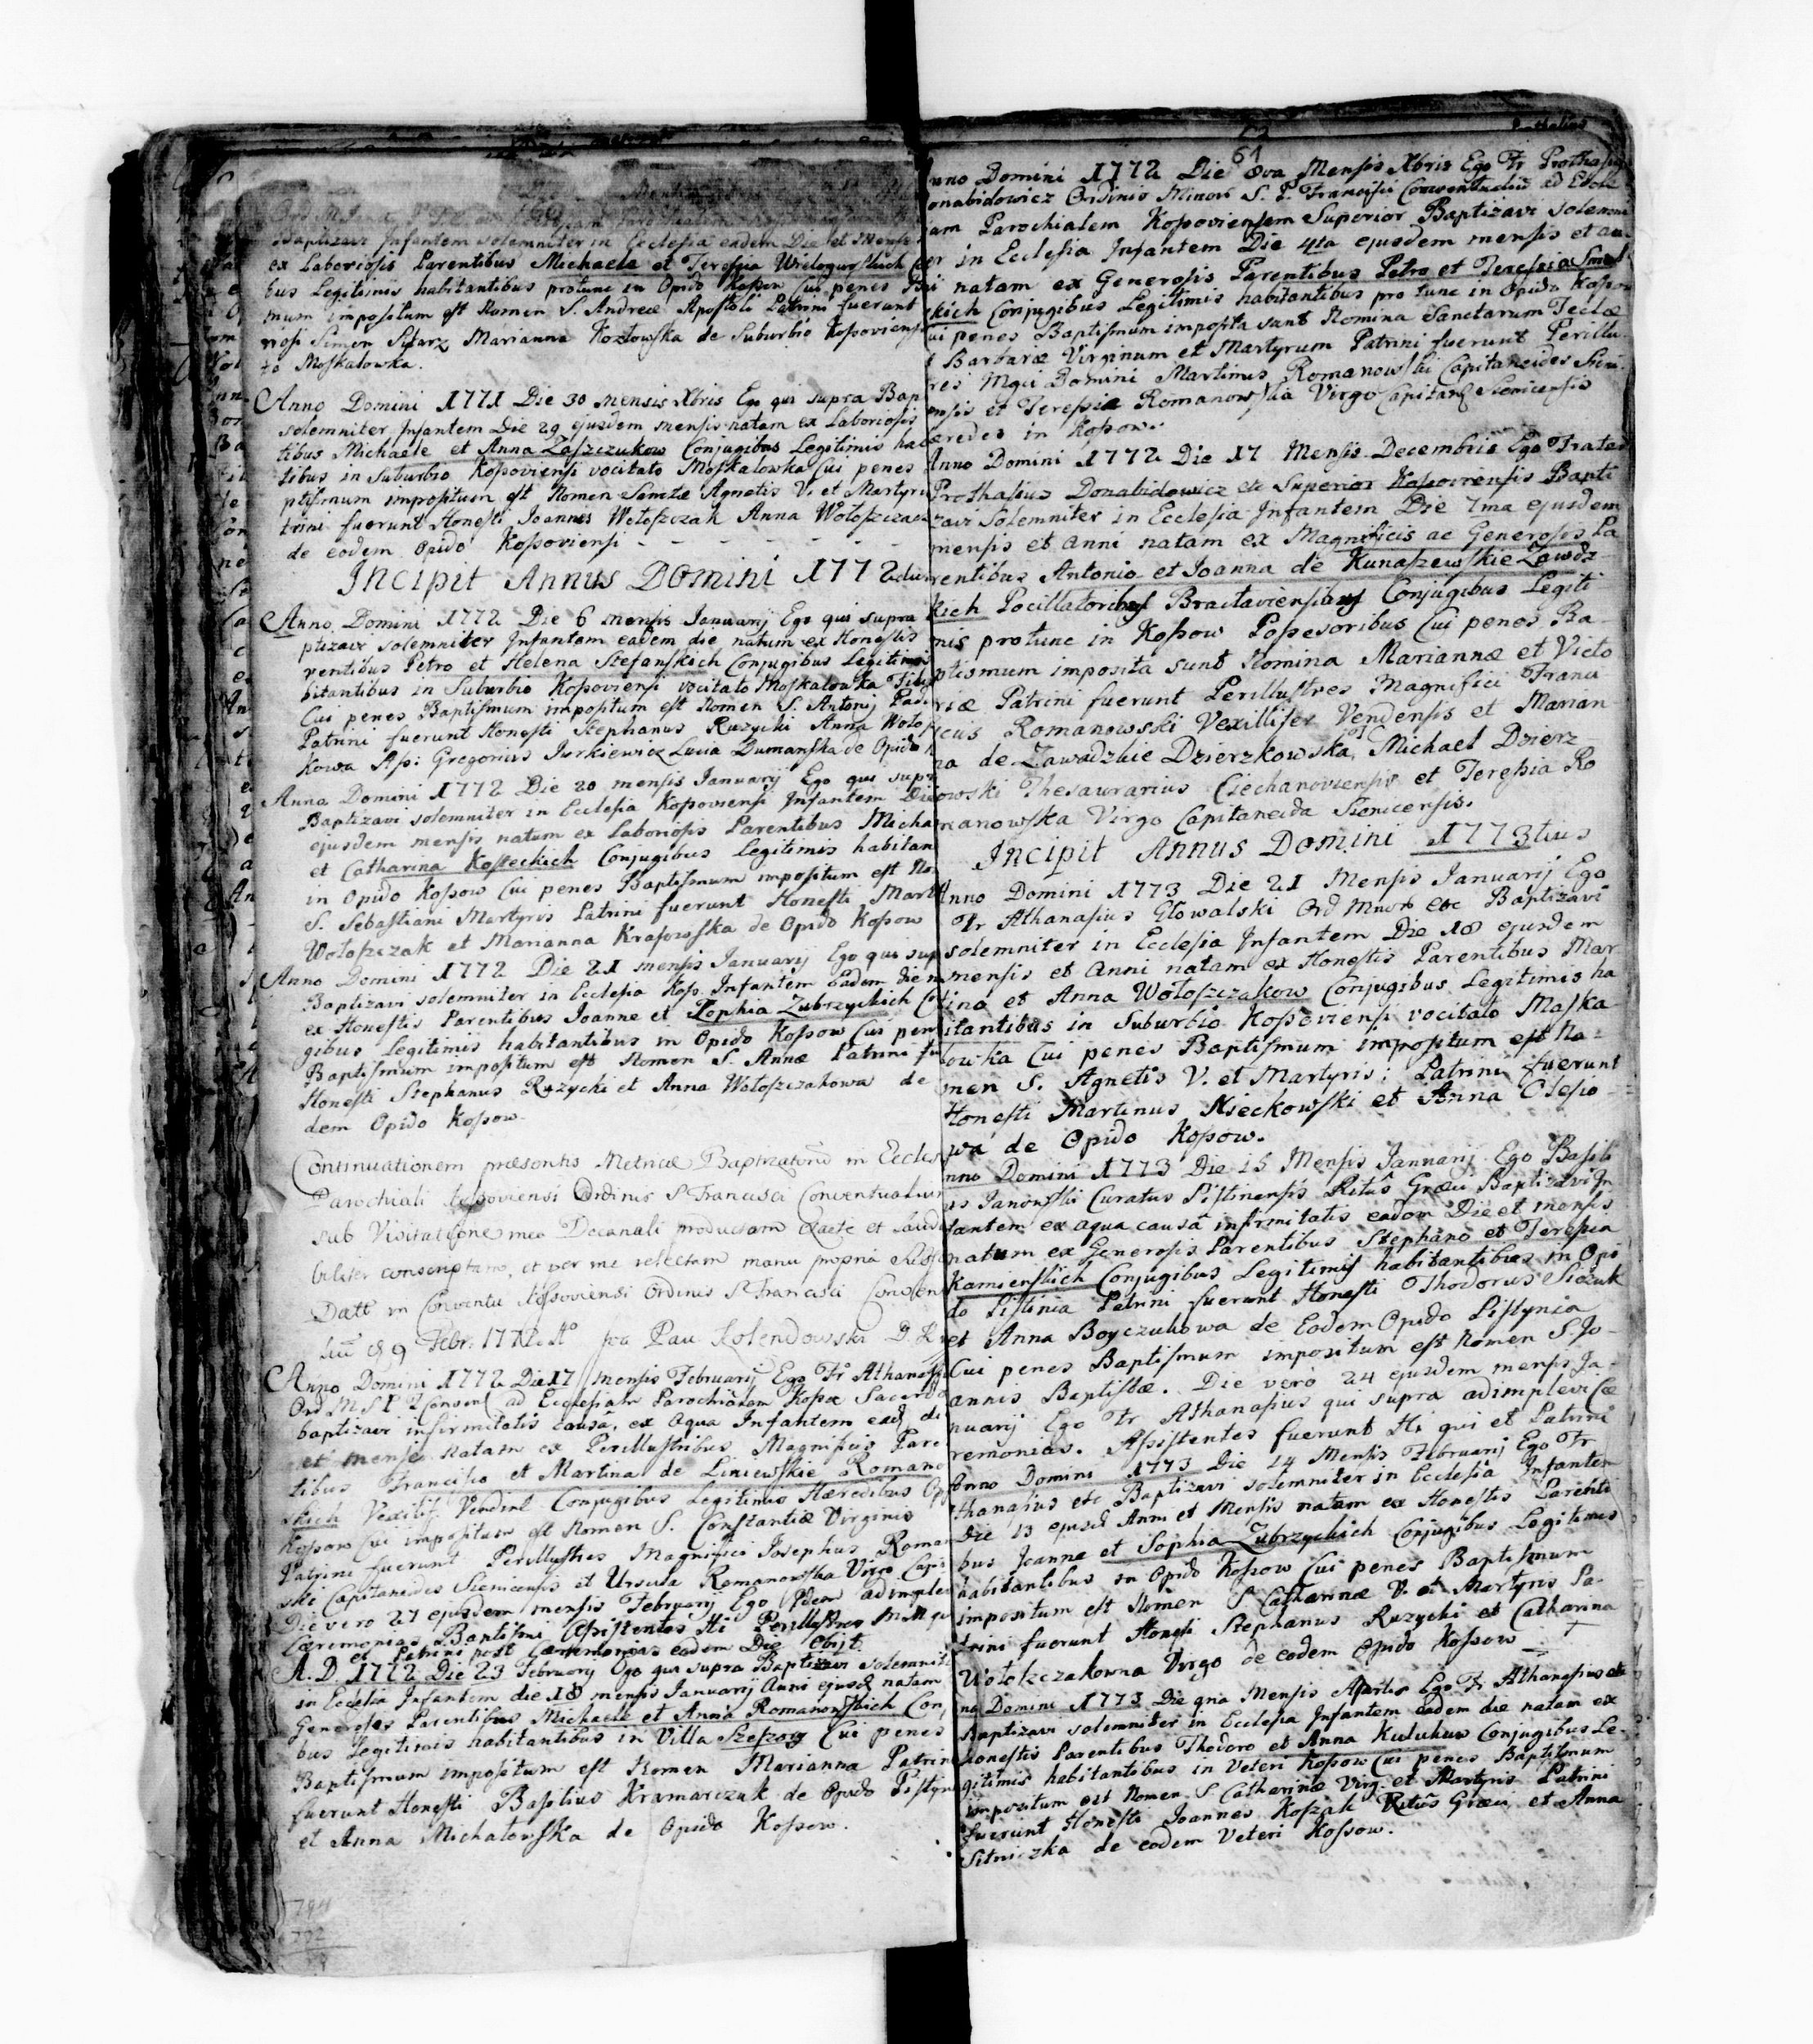 Baptizavi Infantem solemniter in Ecclesia eadem Die et Mense
ex Laboriosis Parentibus Michaele et Teressia
bus Legitimis habitantibus protunc in Opido Kossow Cui penes
mum impositum est Nomen S. Andreæ Apostoli Patrini fuerunt
Simon Marianna Kozłowska de Suburbio Kossoviensi
to Moskalowka.
Anno Domini 1771 Die 30 mensis Xbris Ego qui supra Bap
solemniter Infantem Die 29 ejusdem mensis natam ex Laboriosis
tibus Michaele et Anna Zaszczukow Conjugibus Legitimis ha
tibus in Suburbio Kossoviensi vocitato Moskalowka Cui penes
ptismum impositum est Nomen Sanctæ Agnetis V. et Martyris
trini fuerunt Honesti Joannes Wołoszczak Anna Wołoszczak
de eodem Opido Kossoviensi
Incipit Annus Domini 1772dus
Anno Domini 1772 Die 6 mensis Januarij Ego qui supra
ptizavi solemniter Infantem eadem die natum ex Honestis
rentibus Petro et Helena Stefanskich Conjugibus Legitimis
bitantibus in Suburbio Kossoviensi vocitato Moskalowka
Cui penes Baptismum impositum est Nomen S. Antonij
Patrini fuerunt Honesti Stephanus Ruzycki Anna Wołoszcza
kowa Ass: Gregorius Jurkiewicz Lucia Dumanska de Opido
Anno Domini 1772 Die 20 mensis Januarij Ego qui supra
Baptizavi solemniter in Ecclesia Kossoviensi Infantem Die
ejusdem mensis natum ex Laboriosis Parentibus Micha
et Catharina Kosseckich Conjugibus Legitimis habitan
in Opido Kossow Cui penes Baptismum impositum est No
S. Sebastiani Martyris Patrini fuerunt Honesti Mart
Wołoszczak et Marianna Krasowska de Opido Kossow
Anno Domini 1772 Die 21 mensis Januarij Ego qui sup
Baptizavi solemniter in Ecclesia Koss. Infantem Eadem die n
ex Honestis Parentibus Joanne et Zophia Zubrzyckich Co
gibus Legitimis habitantibus in Opido Kossow Cui pen
Baptismum impositum est Nomen S. Annæ Patrini fu
Honesti Stephanus Ruzycki et Anna Wołoszczakowa de
dem Opido Kossow.
Continuationem præsentis Metricæ Baptizatorum in Eccles
Parochiali Kossoviensi Ordinis S Francisci Conventualium
sub Visitatione mea Decanali productam
conscriptam, et per me relectam manu propria
Datt in Conventu Kossoviensi Ordinis S Francisci Conven
9 Febr: 1772 Kolendowski
Anno Domini 1772 Die 17 mensis Februarij Ego Fr Athanasi
ad Ecclesiam Parochialem Kosso
baptizavi infirmitatis causa, ex Aqua Infantem ead. di
et mense natam ex Perillustribus Magnificis Pare
tibus Francisco et Martina de Liniewskie Romano
wskich Vexilif. Vendint. Conjugibus Legitimis Hæredibus Op
Kossow Cui impositum est Nomen S. Constantiæ Virginis
Patrini fuerunt Perillustres Magnifici Josephus Roman
ski Capitaneides Sienicensis et Ursula Romanowska Virgo Capi
Die vero 27 ejusdem mensis Februarij Ego Idem adimple
Cæremonias Baptismi Assistentes Hi Perillustres MM qu
et Patrini post Cæremonias eadem Die Obijt.
A. D. 1772 Die 23 February Ego qui supra Baptizavi solemnite
in Ecclesia Infantem die 18 mensis Januarij Anni ejusd. natam
Generosis Parentibus Michaele et Anna Romanowskich Con
bus Legitimis habitantibus in Villa Szeszory Cui penes
Baptismum impositum est Nomen Marianna Patrini
fuerunt Honesti Basilius Kramarczuk de Opido Pistyn
et Anna Michałowska de Opido Kossow.
61
nno Domini 1772 Die 8va Mensis Xbris Ego Fr Prothasius
onabidowicz Ordinis Minor S. P. Francisci Conventualiu ad Eccle
am Parochialem Kossoviensem Superior Baptizavi solemni
er in Ecclesia Infantem Die 4ta ejusdem mensis et an
i natam ex Generosis Parentibus Petro et Teressia
kich Conjugibus Legitimis habitantibus pro tunc in Opido Kossow
ui penes Baptismum imposita sunt Nomina Sanctarum Teclæ
t Barbaræ Virginum et Martyrum Patrini fuerunt Perillu
res Mgci Domini Martinus Romanowski Capitaneides Sieni
ensis et Teressia Romanowska Virgo Capitan Sienicensis
eredes in Kossow.
Anno Domini 1772 Die 17 Mensis Decembris Ego Frater
Prothasius Donabidowicz etc Superior Kossoviensis Bapti
zavi Solemniter in Ecclesia Infantem Die 7ma ejusdem
mensis et anni natam ex Magnificis ac Generosis Pa
rentibus Antonio et Joanna de Kunaszewskie Zawadz
kich Pocillatoribus Bractaviensibus Conjugibus Legiti
mis protunc in Kossow Possesoribus Cui penes Ba
ptismum imposita sunt Nomina Mariannæ et Victo
riæ Patrini fuerunt Perillustres Magnifici Franci
scus Romanowski Vexillifer Vendensis et Marian
na de Zawadzkie Dzierzkowska, Michael Dzierz
owski Thesaurarius Ciechanoviensis et Teressia Ro
manowska Virgo Capitaneida Sienicensis.
Incipit Annus Domini 1773tius
Anno Domini 1773 Die 21 Mensis Januarij Ego
Fr Athanasius Głowalski Ord Minor etc Baptizavi
solemniter in Ecclesia Infantem Die 18 ejusdem
mensis et Anni natam ex Honestis Parentibus Mar
tino et Anna Wołoszczakow Conjugibus Legitimis ha
itantibus in Suburbio Kossoviensi vocitato Maska
lowka Cui penes Baptismum impositum est No-
men S. Agnetis V. et Martyris: Patrini fuerunt
Honesti Martinus Nieckowski et Anna Olesio
wa de Opido Kossow.
nno Domini 1773 Die 15 Mensis Januarij Ego Basili
us Janowski Curatus Pistinensis Ritus Græci Baptizavi In
fantem ex aqua causa infirmitatis eadem Die et mensis
natum ex Generosis Parentibus Stephano et Teressia
Kamienskich Conjugibus Legitimis habitantibus in Opi
do Pistinia Patrini fuerunt Honesti Thodorus Siczuk
et Anna Boyczukowa de Eodem Opido Pistynia
Cui penes Baptismum impositum est Nomen S. Jo-
annis Baptistæ. Die vero 24 ejusdem mensis Ja-
nuarij Ego Fr Athanasius qui supra adimplevi Cæ
remonias. Assistentes fuerunt Hi qui et Patrini
Anno Domini 1773 Die 14 Mensis Februarij Ego Fr
thanasius etc Baptizavi solemniter in Ecclesia Infantem
Die 13 ejusd Anni et Mensis natam ex Honestis Parenti
bus Joanne et Sophia Zubrzyckich Conjugibus Legitimis
habitantibus in Opido Kossow Cui penes Baptismum
impositum est Nomen S Catharinæ V. et Martyris Pa-
trini fuerunt Honesti Stephanus Ruzycki et Catharina
Wołoszczakowna Virgo de eodem Opido Kossow
no Domini 1773 Die Mensis Ego Fr Athanasius etc
Baptizavi solemniter in Ecclesia Infantem eadem die natam ex
honestis Parentibus Thodoro et Anna Kulukow Conjugibus Le-
gitimis habitantibus in Veteri Kossow Cui penes Baptismum
impositum est Nomen S Catharinæ Virg. et Martyris Patrini
fuerunt Honesti Joannes Koszak Ritus Græci et Anna
Sitniczka de eodem Veteri Kossow.